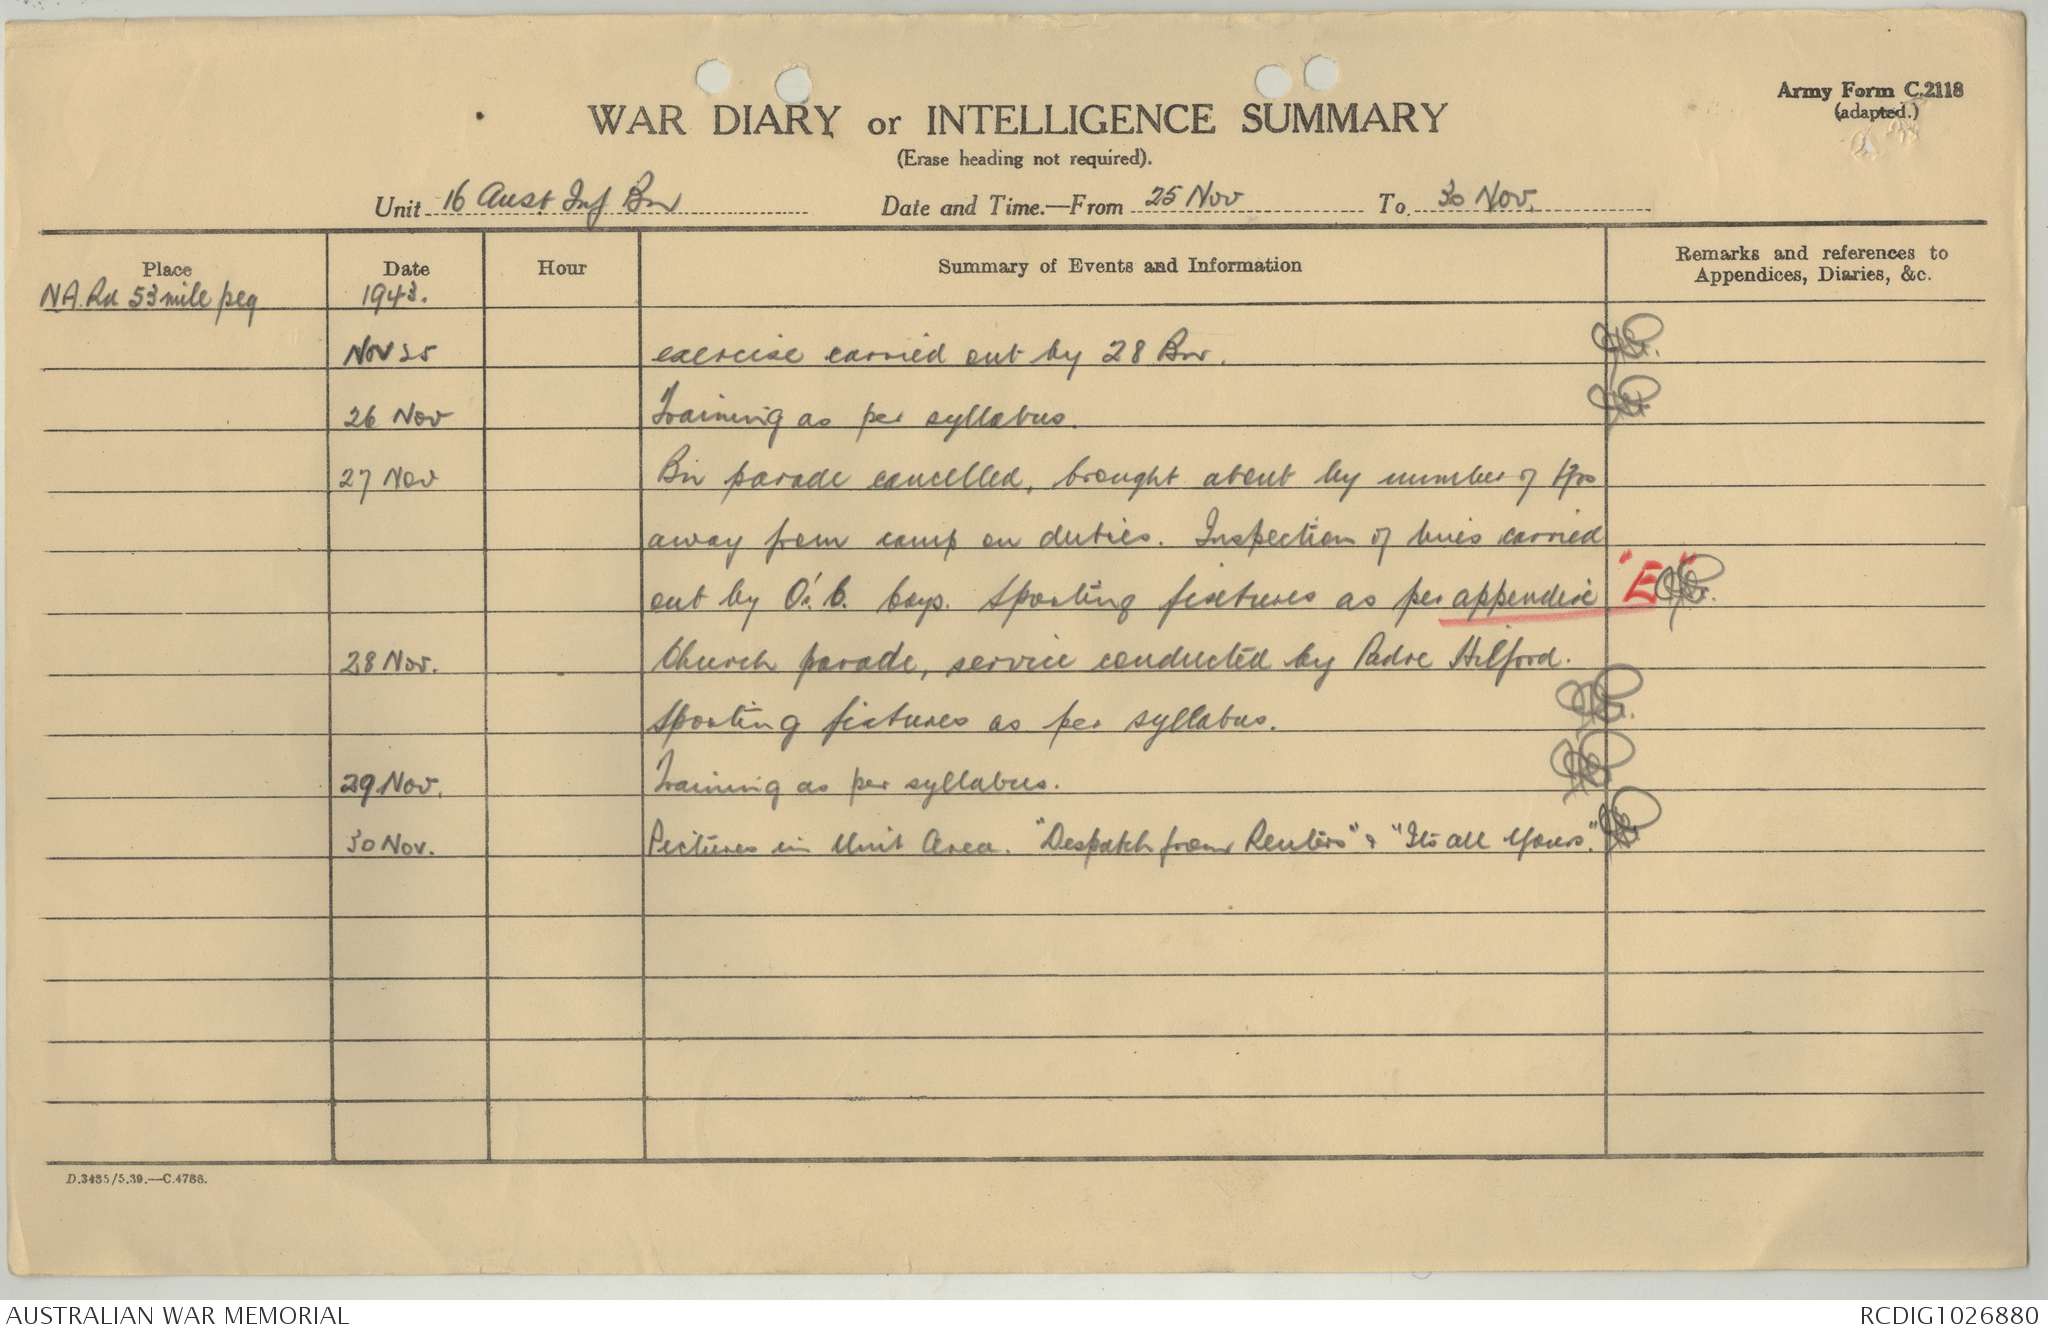 Army Form C.2118
(adapted.)
WAR DIARY or INTELLIGENCE SUMMARY
(Erase heading not required).
Unit 16 Aust Inf Bn Date and Time.—From 25 Nov To 30 Nov.
Place Date Hour Summary of Events and Information Remarks and references to Appendices, Diaries, &c.
NA. Rd 53 mile peg 1943.
Nov 25 exercise carried out by 28 Bn.
26 Nov Training as per syllabus.
27 Nov Bn parade cancelled, brought about by number of tps
away from camp on duties. Inspection of lines carried
out by O's. C. Coys. Sporting fixtures as per appendix "E"
28 Nov. Church parade, service conducted by Padre Hilford.
Sporting fixtures as per syllabus.
29 Nov. Training as per syllabus.
30 Nov. Pictures in Unit Area. "Despatch from Reuters" & "Its all Yours."
D.3435/5.39.—C.4788.
AUSTRALIAN WAR MEMORIAL RCDIG1026880